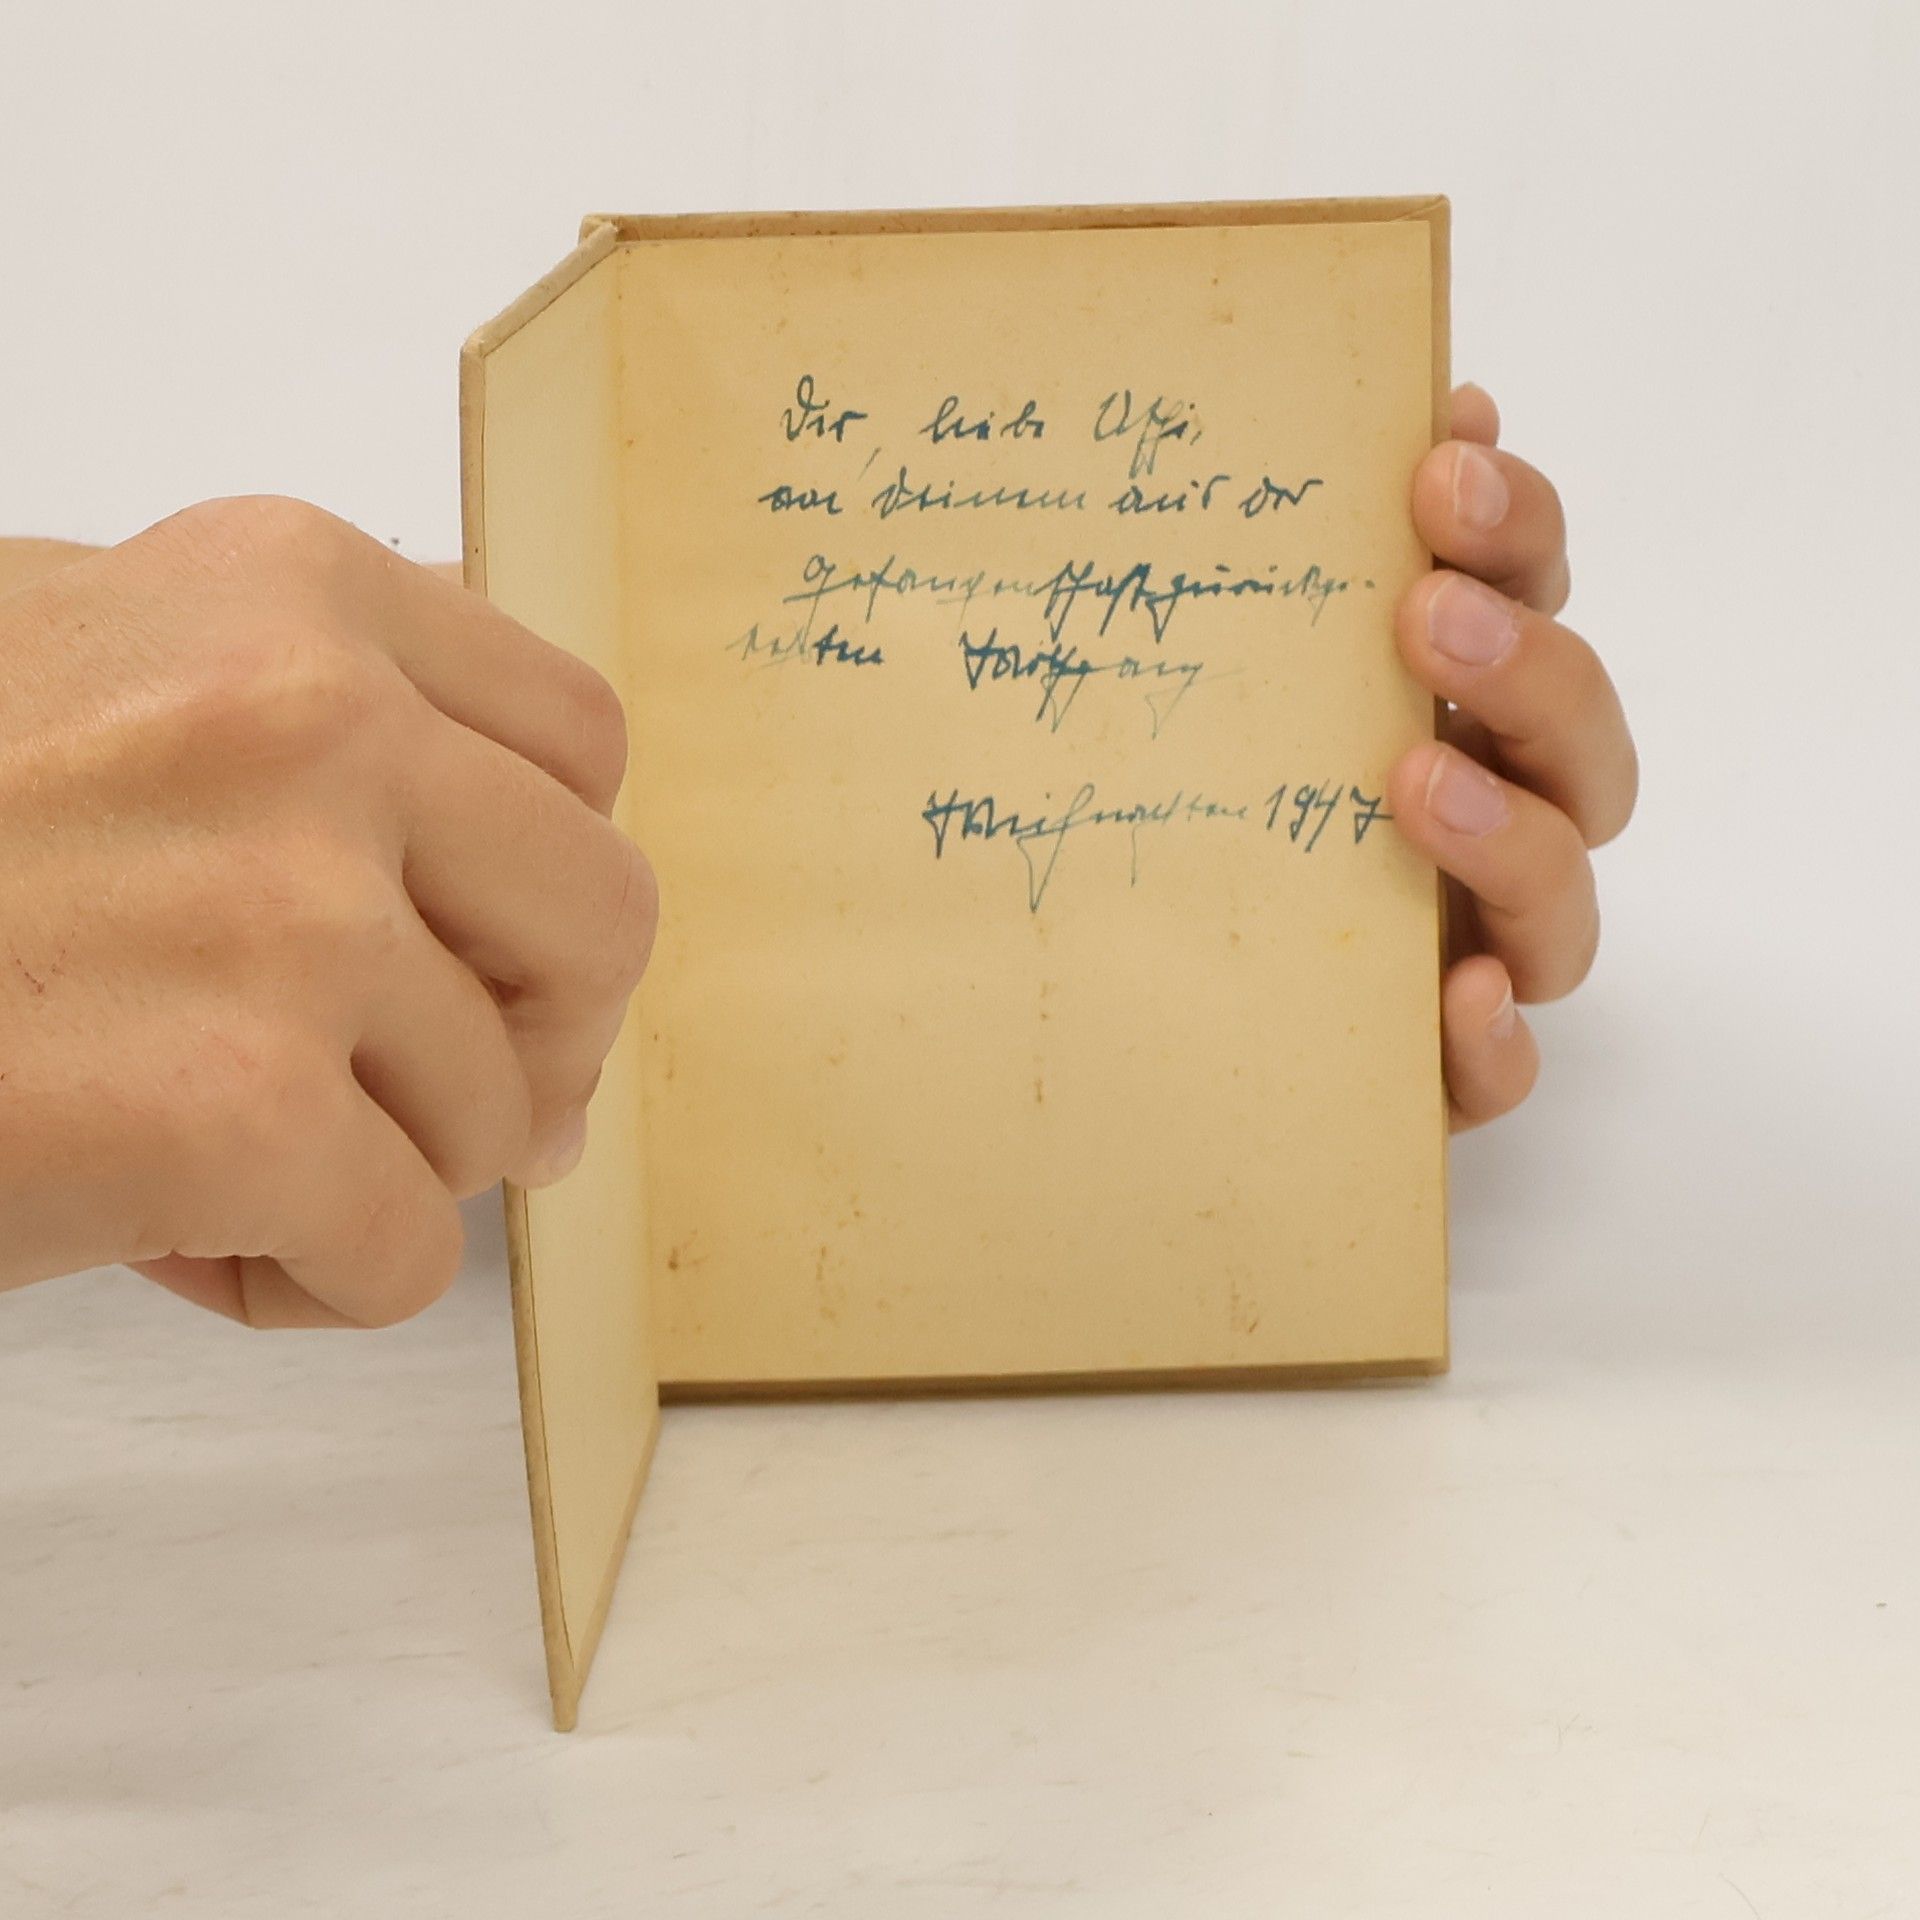 Dir, liebe Uschi,
von Deinem aus der
Gefangenschaft zurückge-
kehrten Wolfgang
Weihnachten 1947